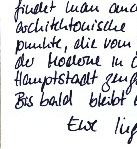 findet man auch
architektonische
punkte, die vom
der Moderne in
Hauptstadt
Bis bald bleibt
Eure